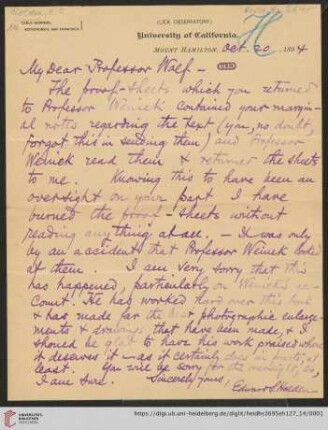 (LICK OBSERVATORY)
University of California.
MOUNT HAMILTON, Oct. 20, 1894
My Dear Professor Wolf —
The proof-sheets which you returned
to Professor Weinek contained your margin-
al notes regarding the text (you, no doubt,
forgot this in sending them) and Professor
Weinek read them & returned the sheets
to me. Knowing this to have been an
oversight on your part I have
burned the proof-sheets without
reading anything at all. — It was only
by an accident that Professor Weinek looked
at them. I am very sorry that this
has happened, particularly on Weinek's ac-
count. He has worked hard over this
& has made far the best photographic enlarge-
ments & drawings that have been made, & I
should be glad to have his work praised where
it deserves it — as it certainly does in parts, at
least. You will be sorry for the oversight, too,
I am sure. Sincerely yours
Edward S. Holden
https://digi.ub.uni-heidelberg.de/diglit/heidhs3695eh127_14/0001